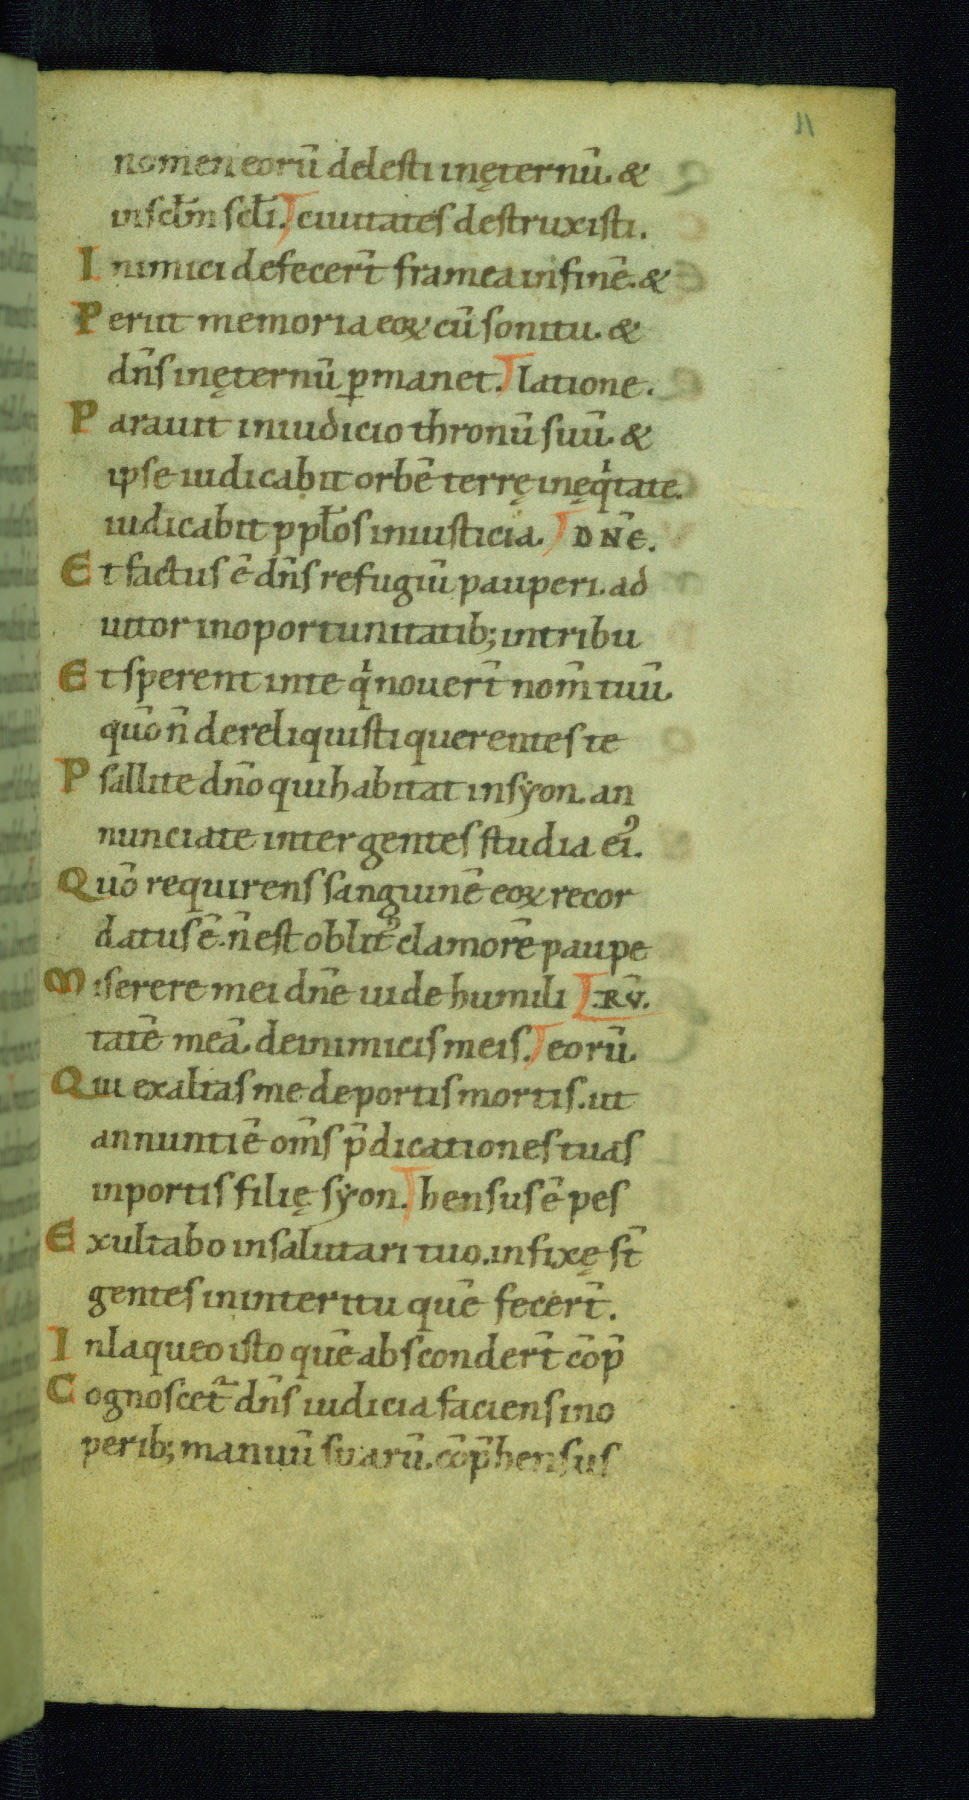 11
nomen eorū delesti inęternū. &
inscl̅m scl̅i. ciuitates destruxisti.
Inimici defecer̅t framea infinē. &
Periit memoria eoꝝ cū sonitu. &
dn̅s inęternū ꝑmanet. latione.
Parauit iniudicio thronū suū. &
ipse iudicabit orbē terrę inęqͥtate.
iudicabit p ppl̅os iniusticia. DN̅E.
Et factus ē dn̅s refugiū pauperi. ad
iutor inoportunitatib; intribu
Et sperent inte qͥ nouer̅t nom̅ tuū.
quō n̅ dereliquisti querentes te
Psallite dn̅o quihabitat insẏon. an
nunciate inter gentes studia eiꝰ.
Quō requirens sanguinē eoꝝ recor
datus ē. n̅ est oblitꝰ clamorē paupe
Miserere mei dn̅e uide humili RV̅.
tatē meā. deinimicis meis. eorū.
Qui exaltas me deportis mortis. ut
annuntiē om̅s p̅dicationes tuas
inportis filię sẏon. hensus ē pes
Exultabo insalutari tuo. infixę st̅
gentes ininteritu quē fecer̅t.
Inlaqueo isto quē absconder̅t cōp̅
Cognoscet᷑ dn̅s iudicia faciens ino
perib; manuū suarū. cōp̅hensus